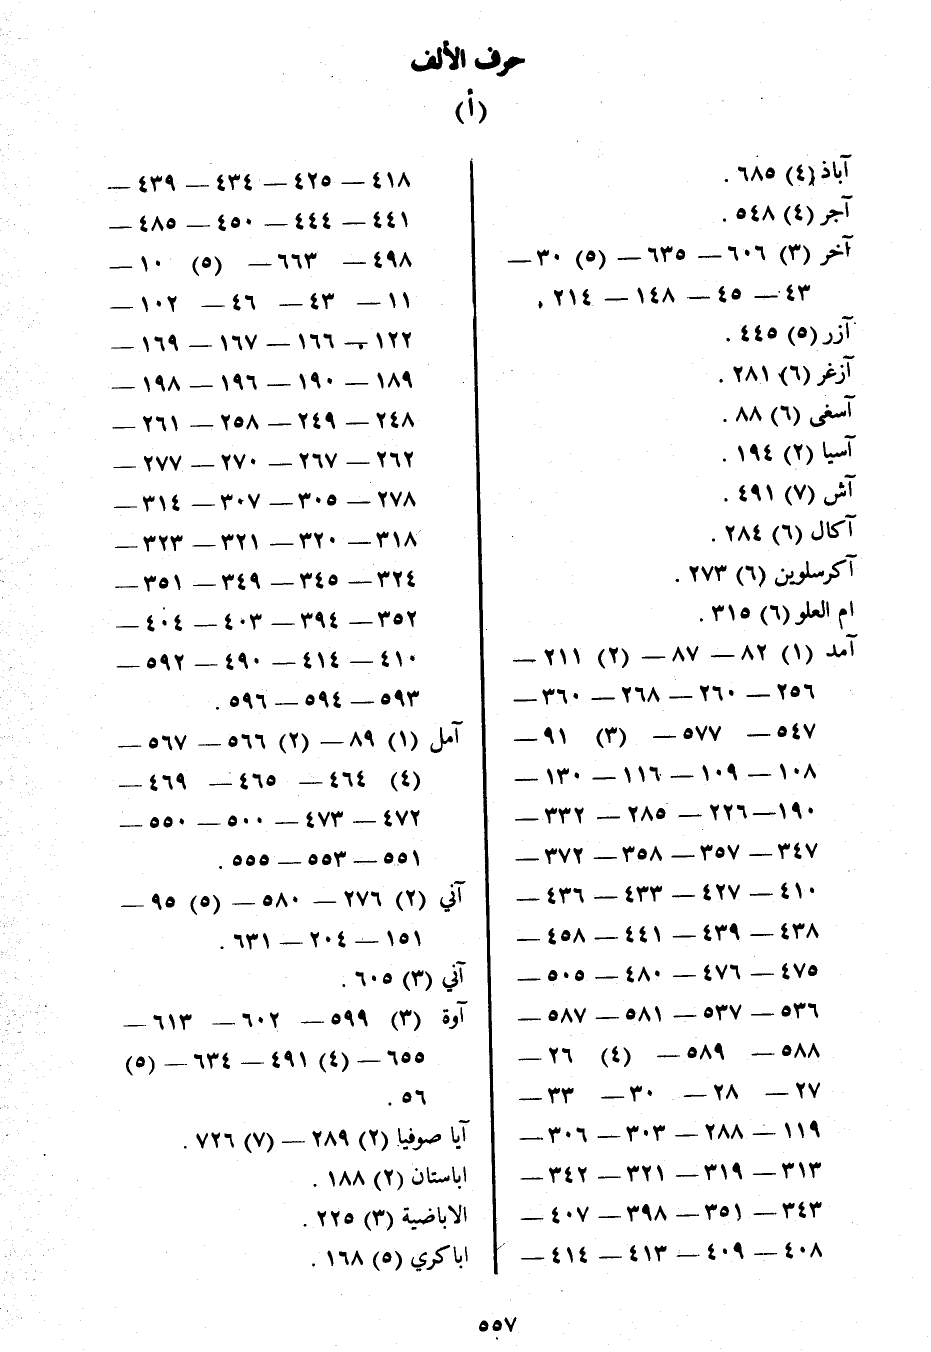 حرف الألف
(أ)
آباذ (٤) ٦٨٥ .
آجر (٤) ٥٤٨ .
آخر (٣) ٦٠٦ — ٦٣٥ — (٥) ٣٠ —
٤٣ — ٤٥ — ١٤٨ — ٢١٤ .
آزر (٥) ٤٤٥ .
آزغر (٦) ٢٨١ .
آسفى (٦) ٨٨ .
آسيا (٢) ١٩٤ .
آش (٧) ٤٩١ .
آكال (٦) ٢٨٤ .
آكرسلوين (٦) ٢٧٣ .
ام العلو (٦) ٣١٥ .
آمد (١) ٨٢ — ٨٧ — (٢) ٢١١ —
٢٥٦ — ٢٦٠ — ٢٦٨ — ٣٦٠ —
٥٤٧ — ٥٧٧ — (٣) ٩١ —
١٠٨ — ١٠٩ — ١١٦ — ١٣٠ —
١٩٠ — ٢٢٦ — ٢٨٥ — ٣٣٢ —
٣٤٧ — ٣٥٧ — ٣٥٨ — ٣٧٢ —
٤١٠ — ٤٢٧ — ٤٣٣ — ٤٣٦ —
٤٣٨ — ٤٣٩ — ٤٤١ — ٤٥٨ —
٤٧٥ — ٤٧٦ — ٤٨٠ — ٥٠٥ —
٥٣٦ — ٥٣٧ — ٥٨١ — ٥٨٧ —
٥٨٨ — ٥٨٩ — (٤) ٢٦ —
٢٧ — ٢٨ — ٣٠ — ٣٣ —
١١٩ — ٢٨٨ — ٣٠٣ — ٣٠٦ —
٣١٣ — ٣١٩ — ٣٢١ — ٣٤٢ —
٣٤٣ — ٣٥١ — ٣٩٨ — ٤٠٧ —
٤٠٨ — ٤٠٩ — ٤١٣ — ٤١٤ —
٤١٨ — ٤٢٥ — ٤٣٤ — ٤٣٩ —
٤٤١ — ٤٤٤ — ٤٥٠ — ٤٨٥ —
٤٩٨ — ٦٦٣ — (٥) ١٠ —
١١ — ٤٣ — ٤٦ — ١٠٢ —
١٢٢ — ١٦٦ — ١٦٧ — ١٦٩ —
١٨٩ — ١٩٠ — ١٩٦ — ١٩٨ —
٢٤٨ — ٢٤٩ — ٢٥٨ — ٢٦١ —
٢٦٢ — ٢٦٧ — ٢٧٠ — ٢٧٧ —
٢٧٨ — ٣٠٥ — ٣٠٧ — ٣١٤ —
٣١٨ — ٣٢٠ — ٣٢١ — ٣٢٣ —
٣٢٤ — ٣٤٥ — ٣٤٩ — ٣٥١ —
٣٥٢ — ٣٩٤ — ٤٠٣ — ٤٠٤ —
٤١٠ — ٤١٤ — ٤٩٠ — ٥٩٢ —
٥٩٣ — ٥٩٤ — ٥٩٦ .
آمل (١) ٨٩ — (٢) ٥٦٦ — ٥٦٧ —
(٤) ٤٦٤ — ٤٦٥ — ٤٦٩ —
٤٧٢ — ٤٧٣ — ٥٠٠ — ٥٥٠ —
٥٥١ — ٥٥٣ — ٥٥٥ .
آني (٢) ٢٧٦ — ٥٨٠ — (٥) ٩٥ —
١٥١ — ٢٠٤ — ٦٣١ .
آني (٣) ٦٠٥ .
آوة (٣) ٥٩٩ — ٦٠٢ — ٦١٣ —
٦٥٥ — (٤) ٤٩١ — ٦٣٤ — (٥)
٥٦ .
آيا صوفيا (٢) ٢٨٩ — (٧) ٧٢٦ .
اباستان (٢) ١٨٨ .
الاباضية (٣) ٢٢٥ .
اباكري (٥) ١٦٨ .
٥٥٧